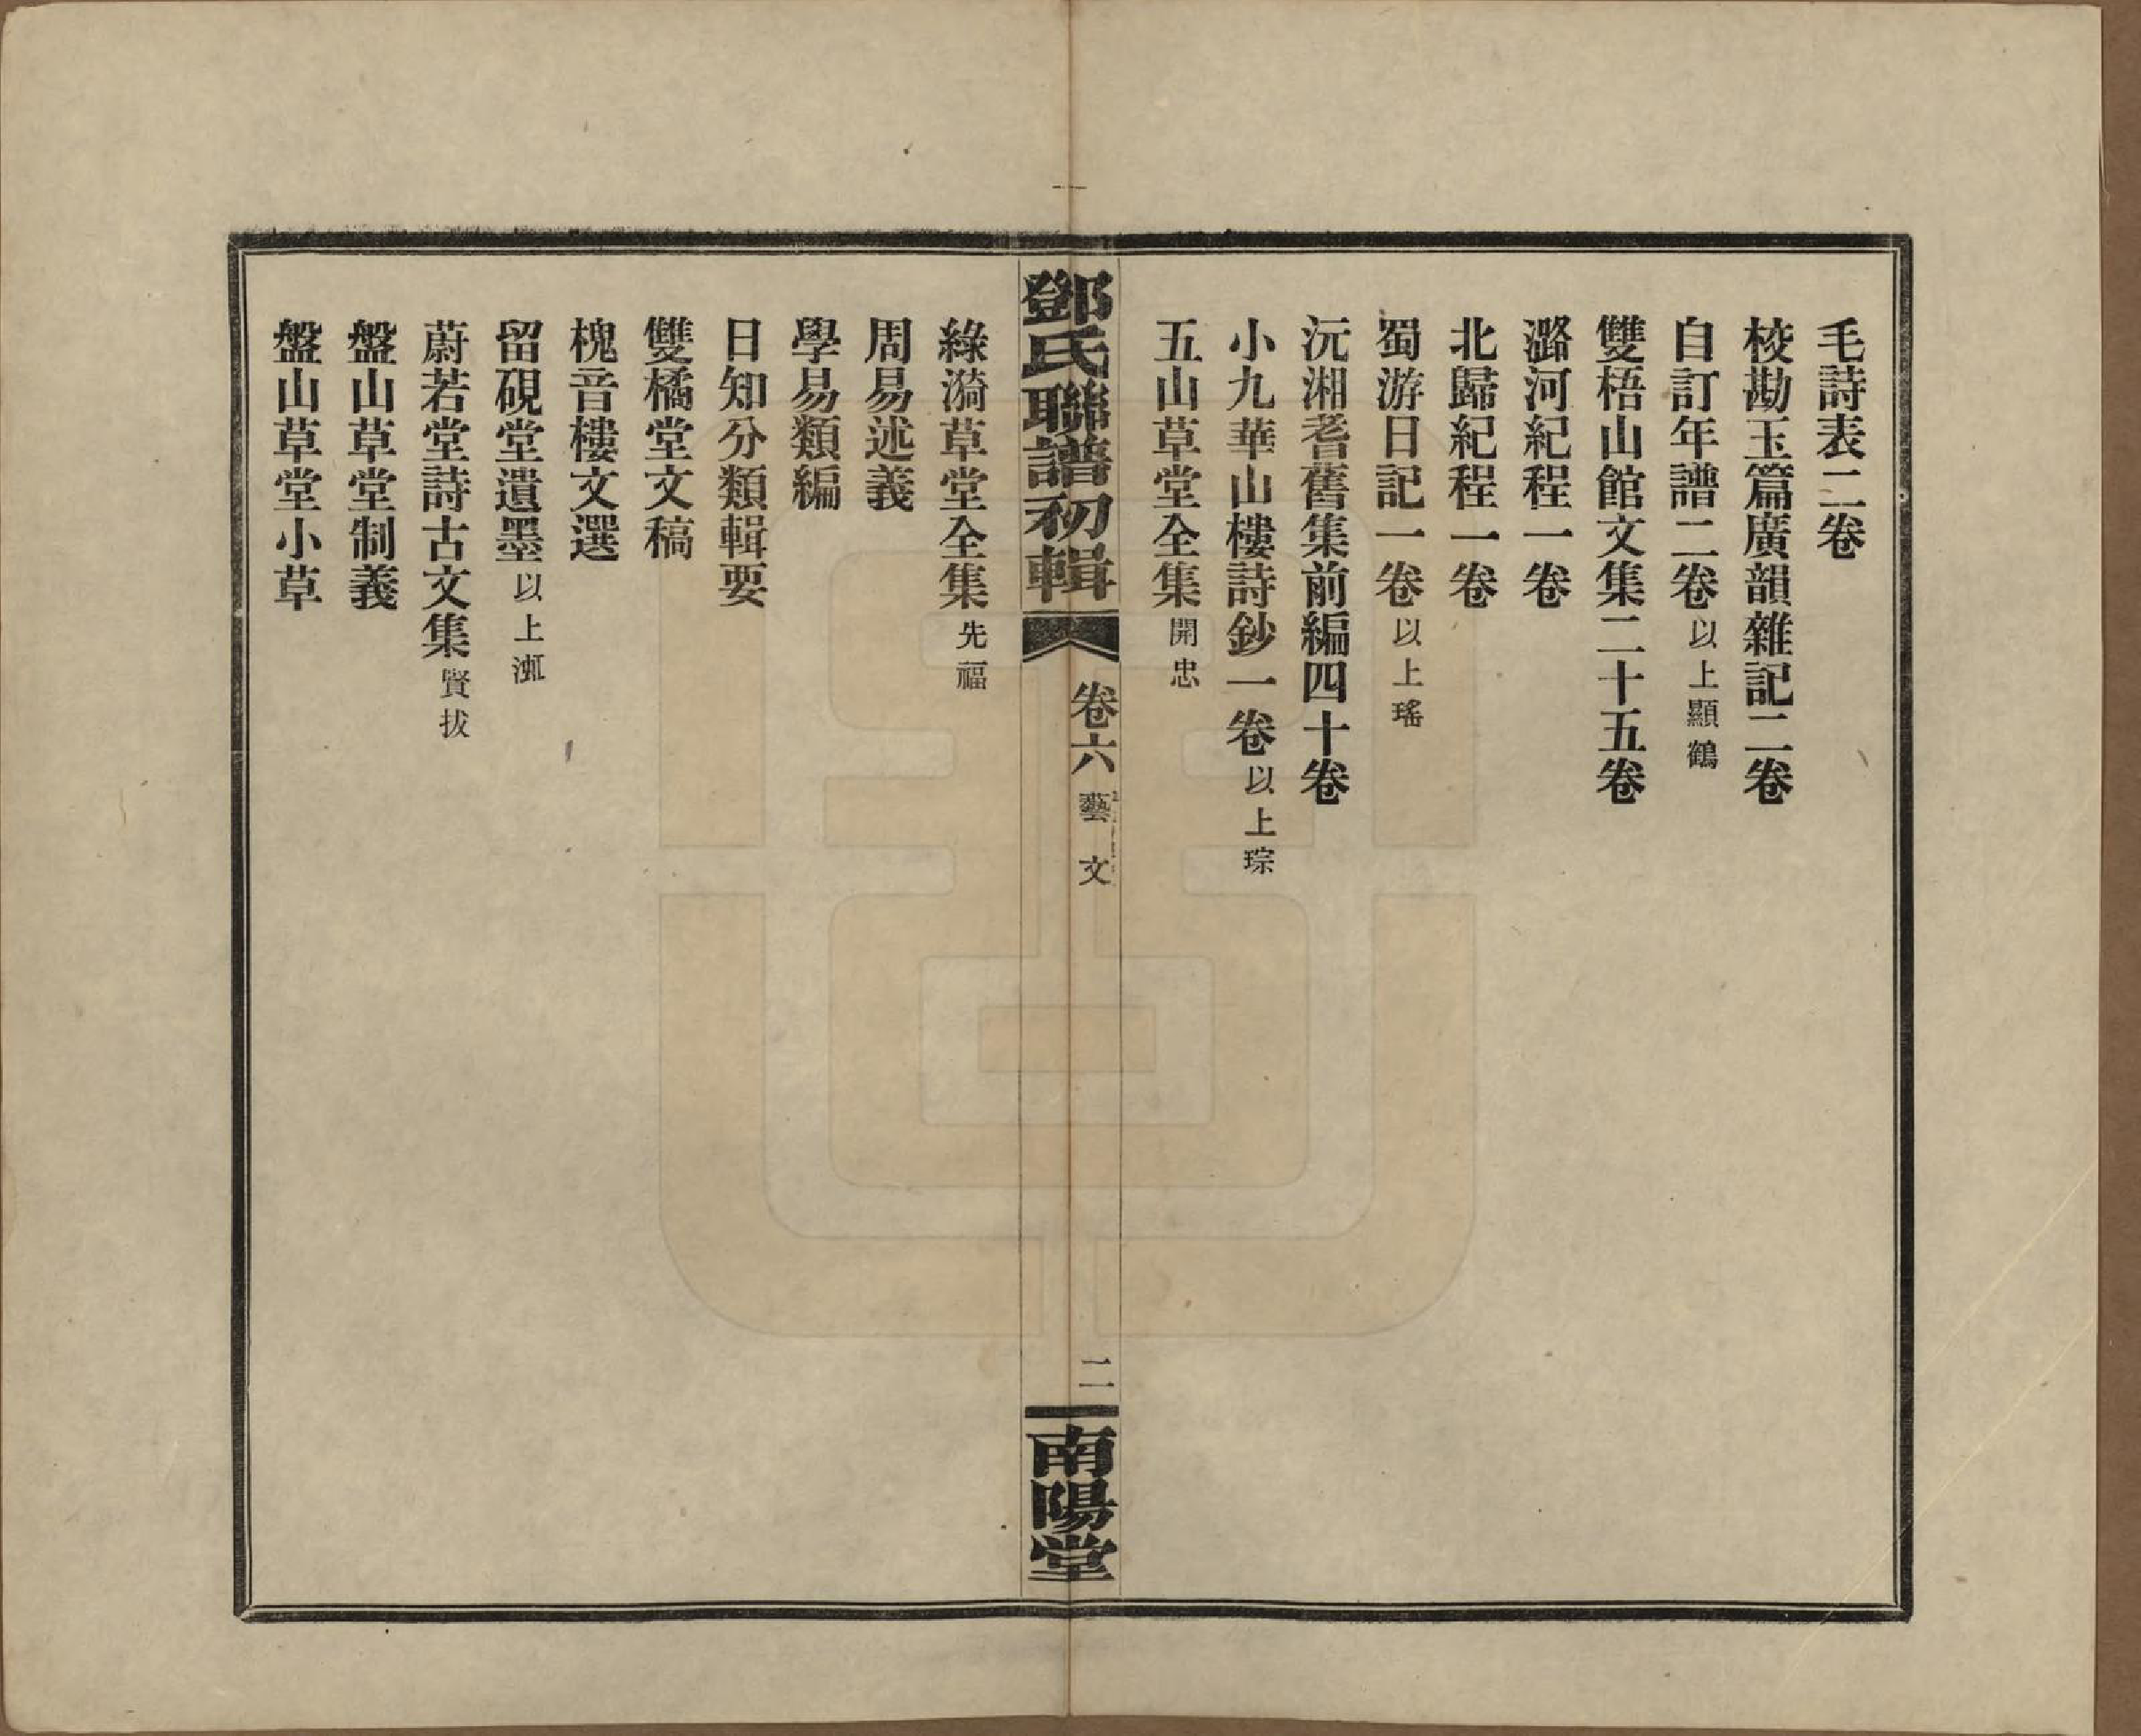 毛詩表二卷
校勘玉篇廣韻雜記二卷
自訂年譜二卷以上顯鶴
雙梧山館文集二十五卷
潞河紀程一卷
北歸紀程一卷
蜀游日記一卷以上瑤
沅湘耆舊集前編四十卷
小九華山樓詩鈔一卷以上琮
五山草堂全集開忠
鄧氏聯譜初輯 卷六 藝文 二 南陽堂
綠漪草堂全集先福
周易述義
學易類編
日知分類輯要
雙橘堂文稿
槐音樓文選
留硯堂遺墨以上
蔚若堂詩古文集賢拔
盤山草堂制義
盤山草堂小草